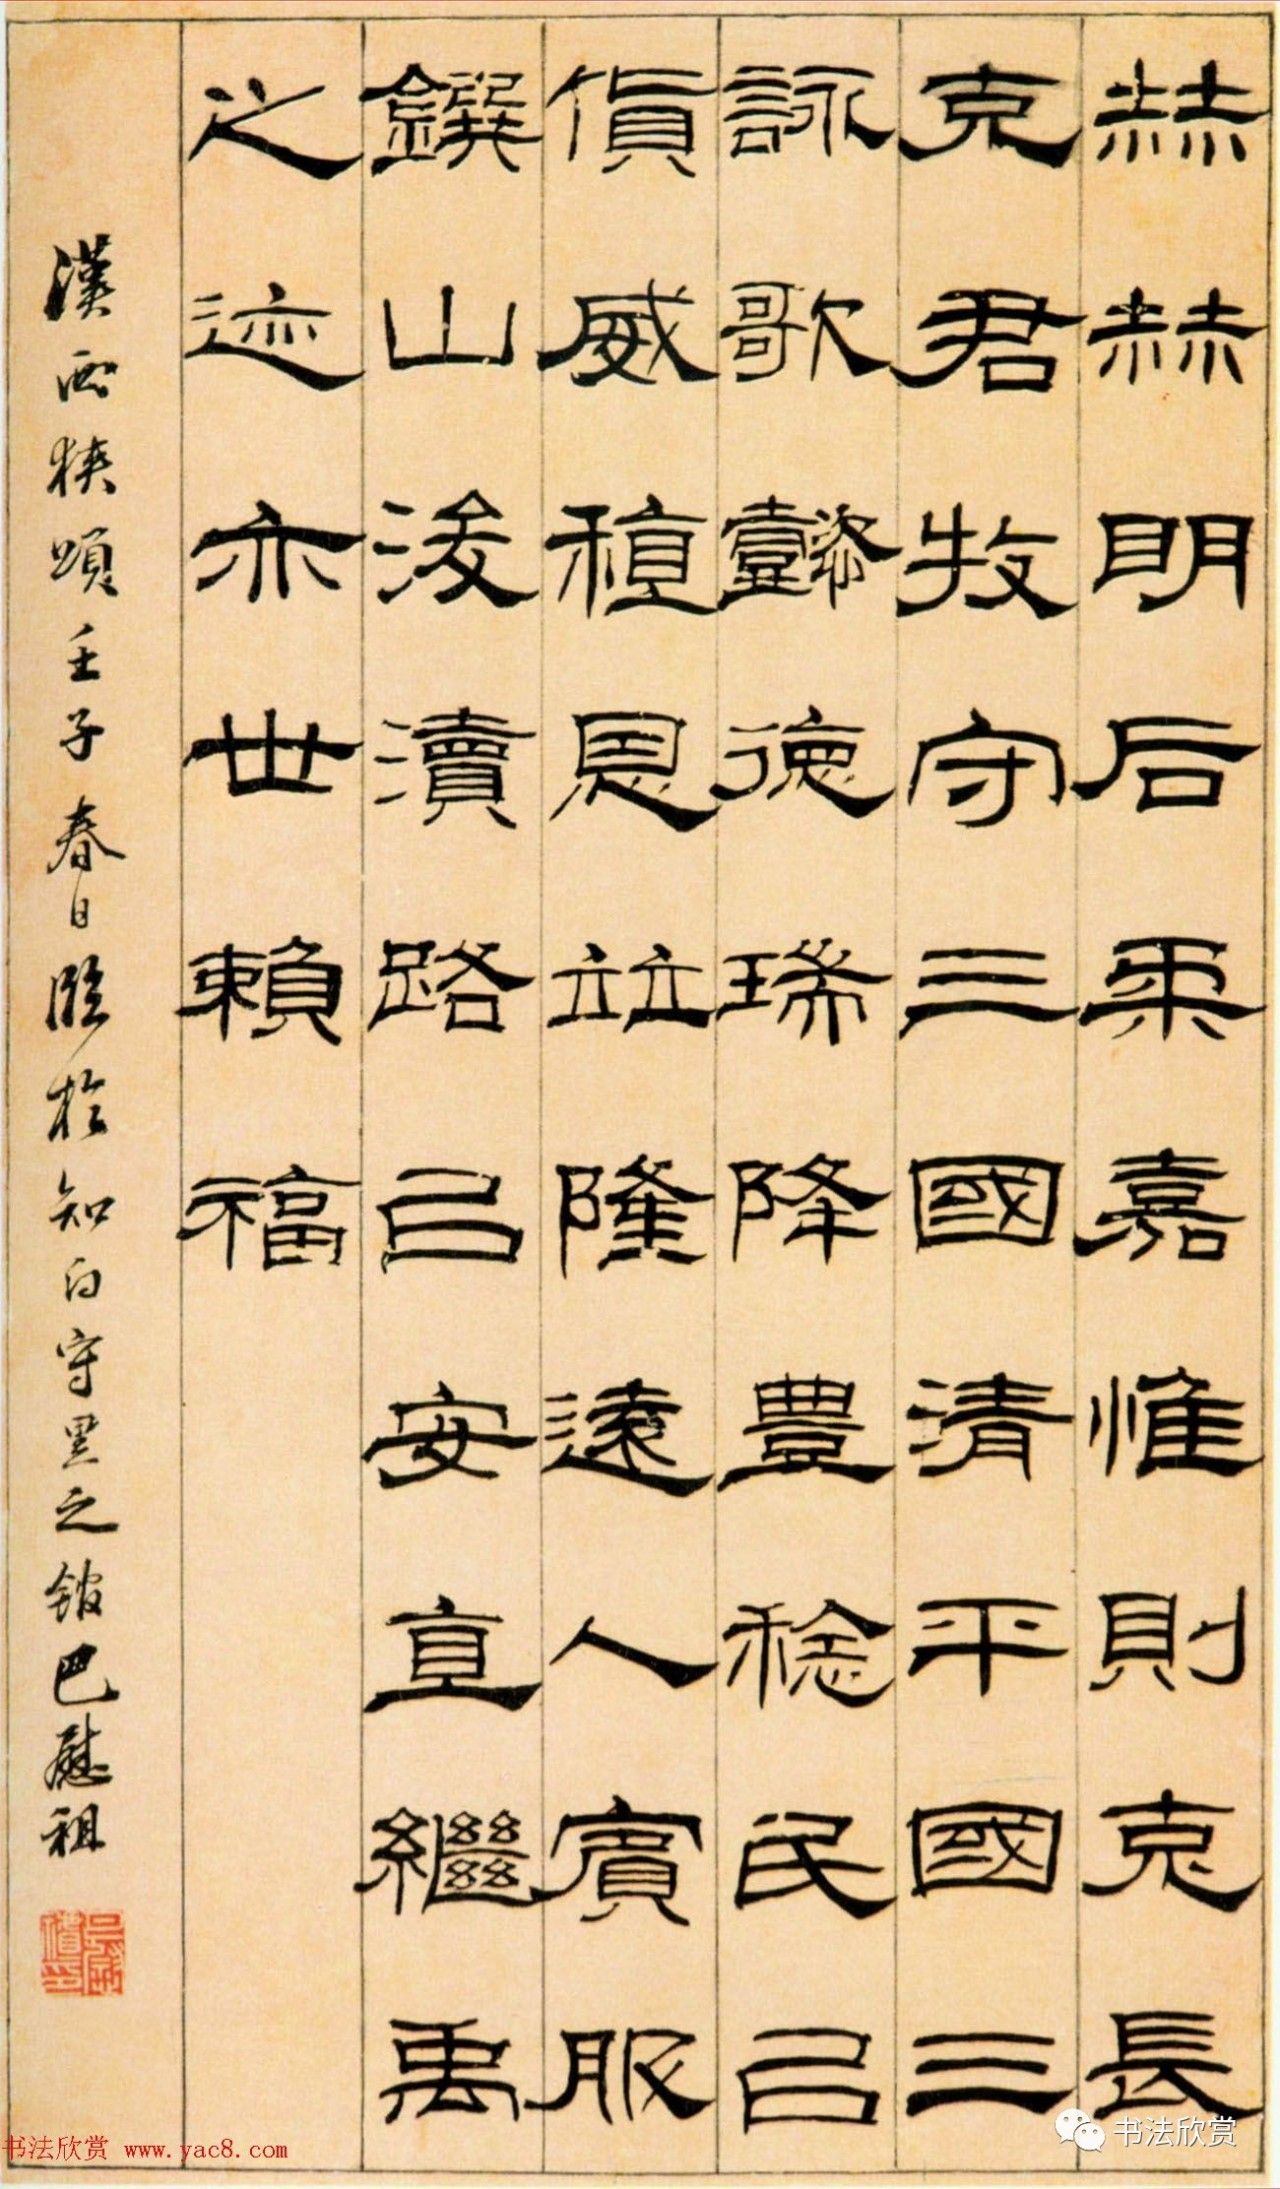 赫赫明后柔嘉惟則克長
克君牧守三國清平國三
詠歌懿德瑞降豐稔民以
貨威稙恩竝隆遠人賓服
鐉山浚瀆路以安直繼禹
之迹亦世賴福
漢西狹頌壬子春日臨於知白守黑之館巴慰祖
书法欣赏 www.yac8.com
书法欣赏